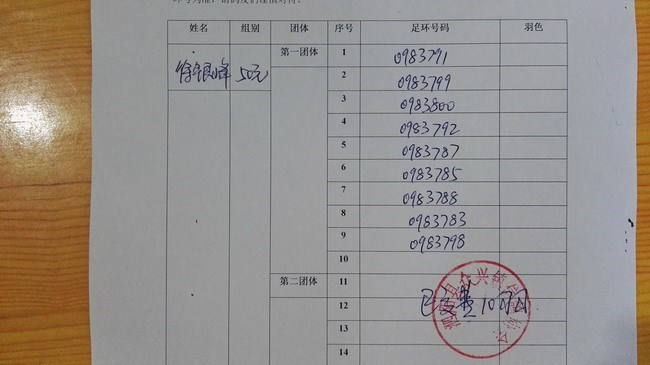 姓名 组别 团体 序号 足环号码 羽色
第一团体 1 0983791
50元 2 0983799
3 0983800
4 0983792
5 0983787
6 0983785
7 0983788
8 0983783
9 0983798
10
第二团体 11
12 已交费
13
14